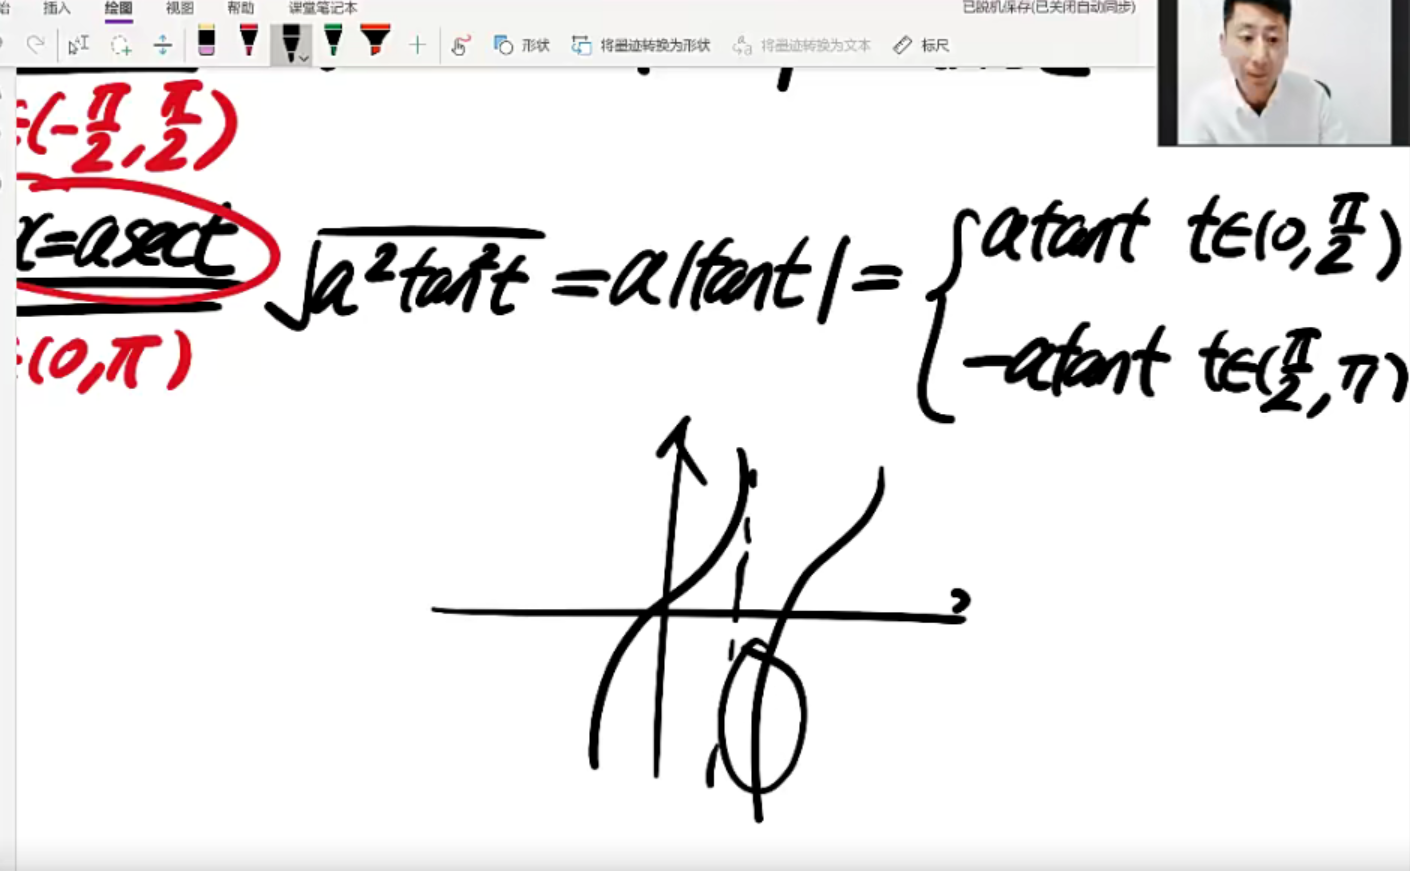 插入 绘图 视图 帮助 课堂笔记本 已脱机保存(已关闭自动同步)
形状 将墨迹转换为形状 将墨迹转换为文本 标尺
∈(-π/2, π/2)
x=asect √(a²tan²t) = a|tant| = { atant t∈(0, π/2)
-atant t∈(π/2, π)
∈(0, π)